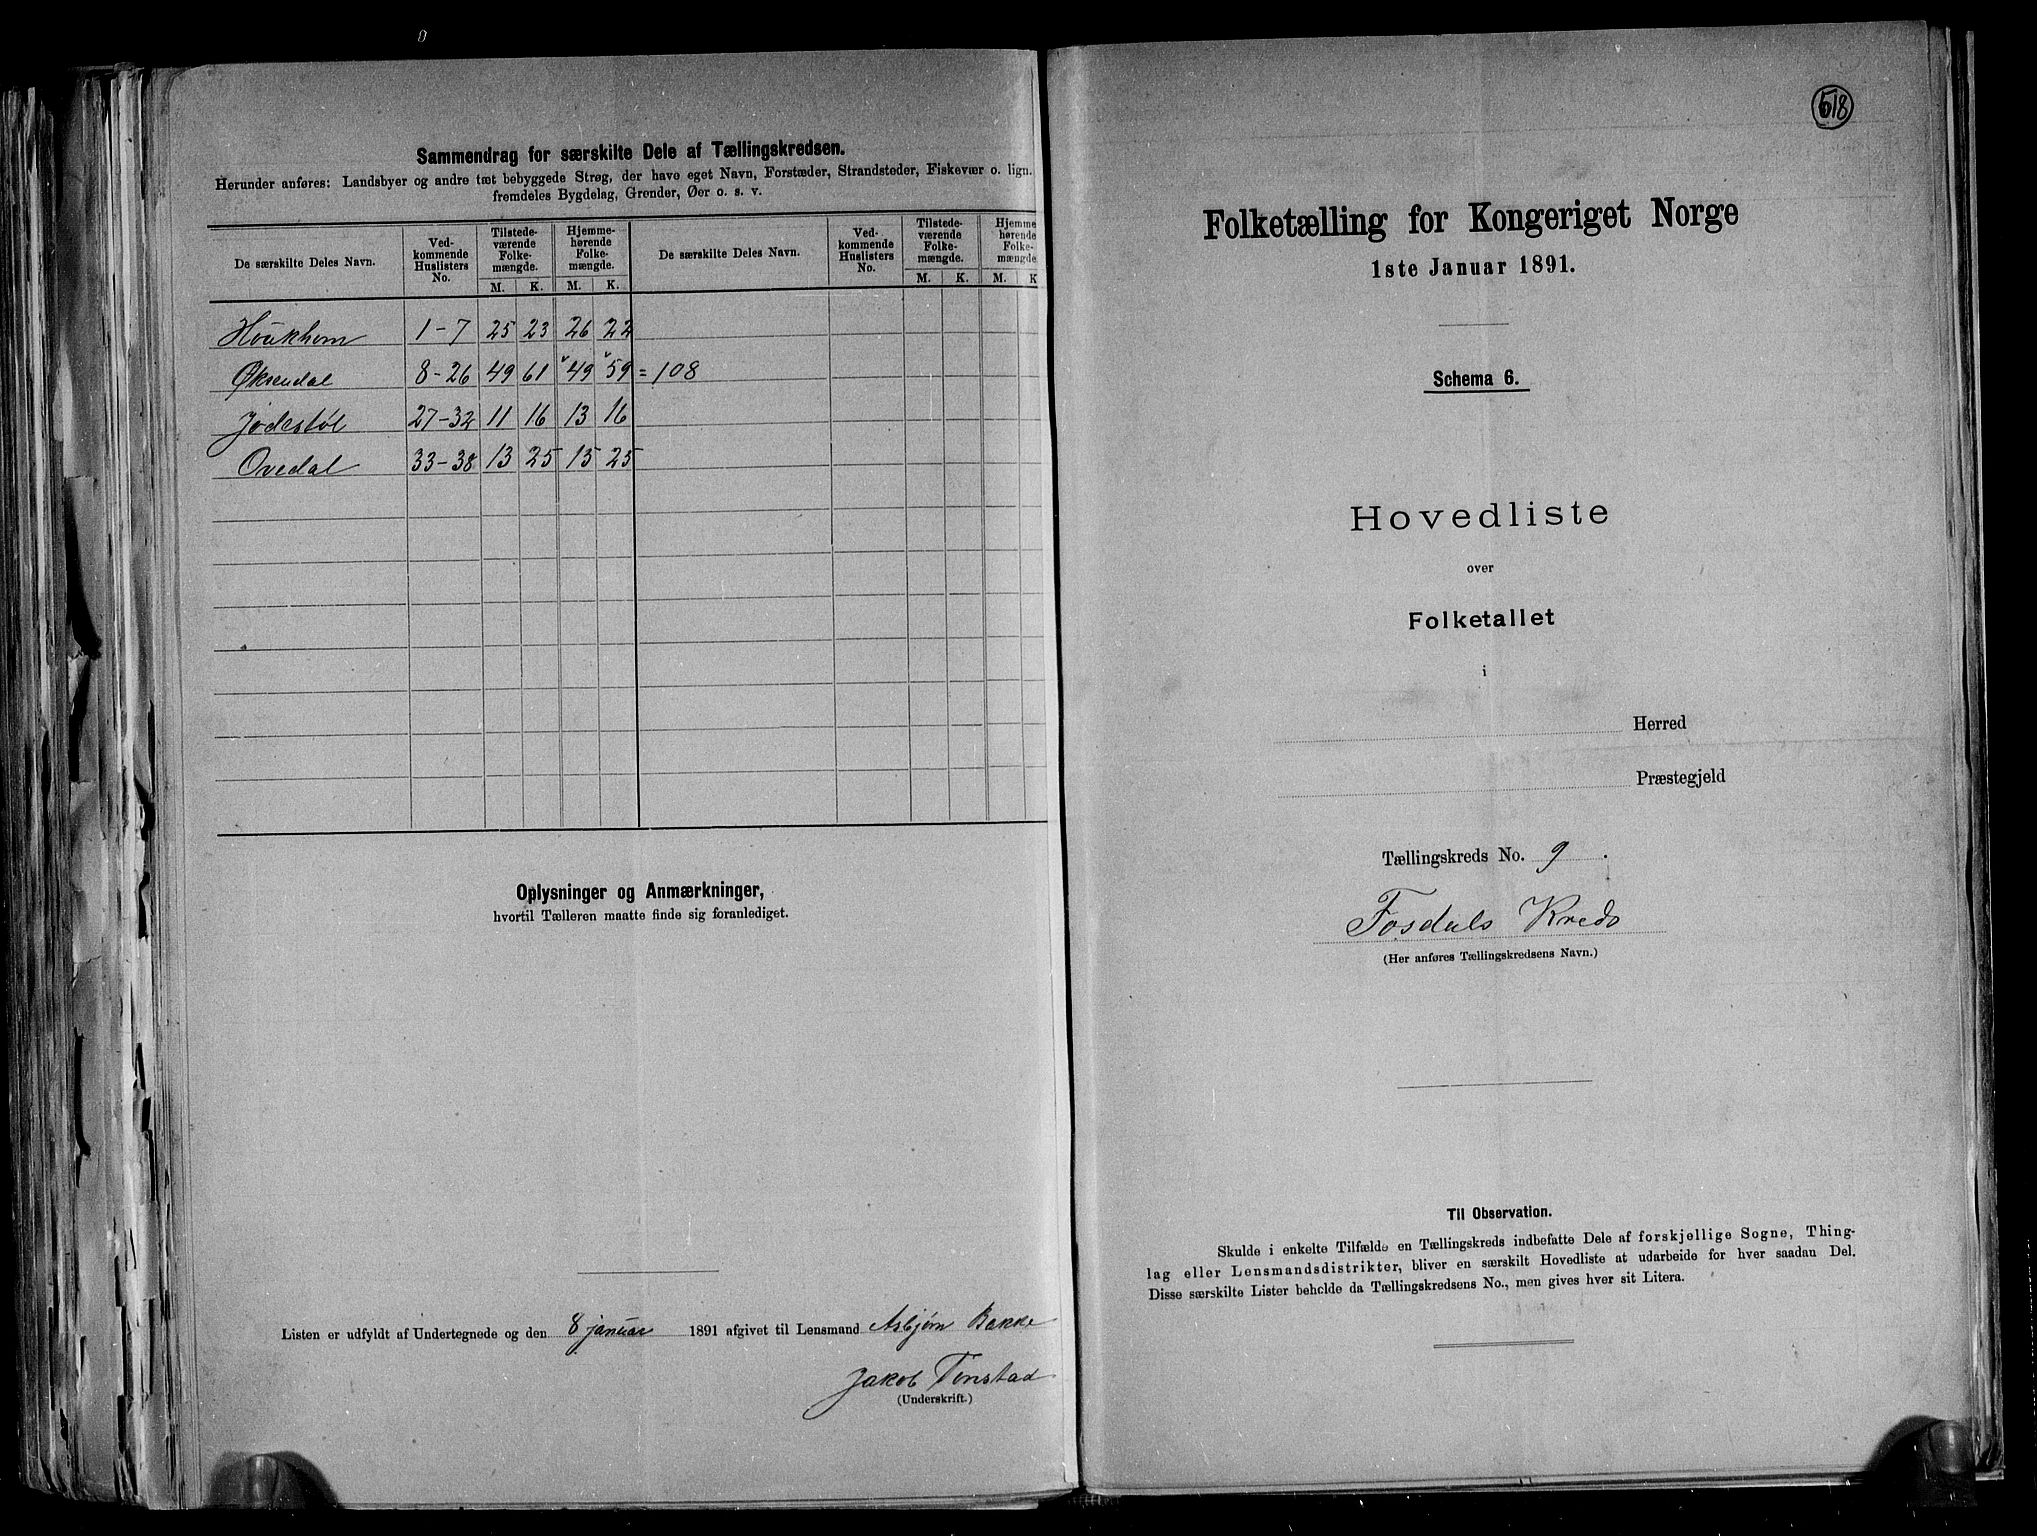 Sammendrag for særskilte Dele af Tællingskredsen.
Herunder anføres: Landsbyer og andre tæt bebyggede Strøg, der have eget Navn, Forstæder, Strandsteder, Fiskevær o. lign.
fremdeles Bygdelag, Grender, Øer o. s. v.
De særskilte Deles Navn. Ved-kommende Huslisters No. Tilstede-værende Folke-mængde. Hjemme-hørende Folke-mængde. De særskilte Deles Navn. Ved-kommende Huslisters No. Tilstede-værende Folke-mængde. Hjemme-hørende Folke-mængde
M. K. M. K. M. K. M. K
1-7 25 23 26 22
Øksendal 8-26 49 61 49 59 = 108
Jødestøl 27-32 11 16 13 16
Ovedal 33-38 13 25 15 25
Oplysninger og Anmærkninger,
hvortil Tælleren maatte finde sig foranlediget.
Listen er udfyldt af Undertegnede og den 8 januar 1891 afgivet til Lensmand Asbjørn Bakke
Jakob Tonstad
(Underskrift.)
518
Folketælling for Kongeriget Norge
1ste Januar 1891.
Schema 6.
Hovedliste
over
Folketallet
i
Herred
Præstegjeld
Tællingskreds No. 9.
Fosdals Kreds
(Her anføres Tællingskredsens Navn.)
Til Observation.
Skulde i enkelte Tilfælde en Tællingskreds indbefatte Dele af forskjellige Sogne, Thing-
lag eller Lensmandsdistrikter, bliver en særskilt Hovedliste at udarbeide for hver saadan Del.
Disse særskilte Lister beholde da Tællingskredsens No., men gives hver sit Litera.